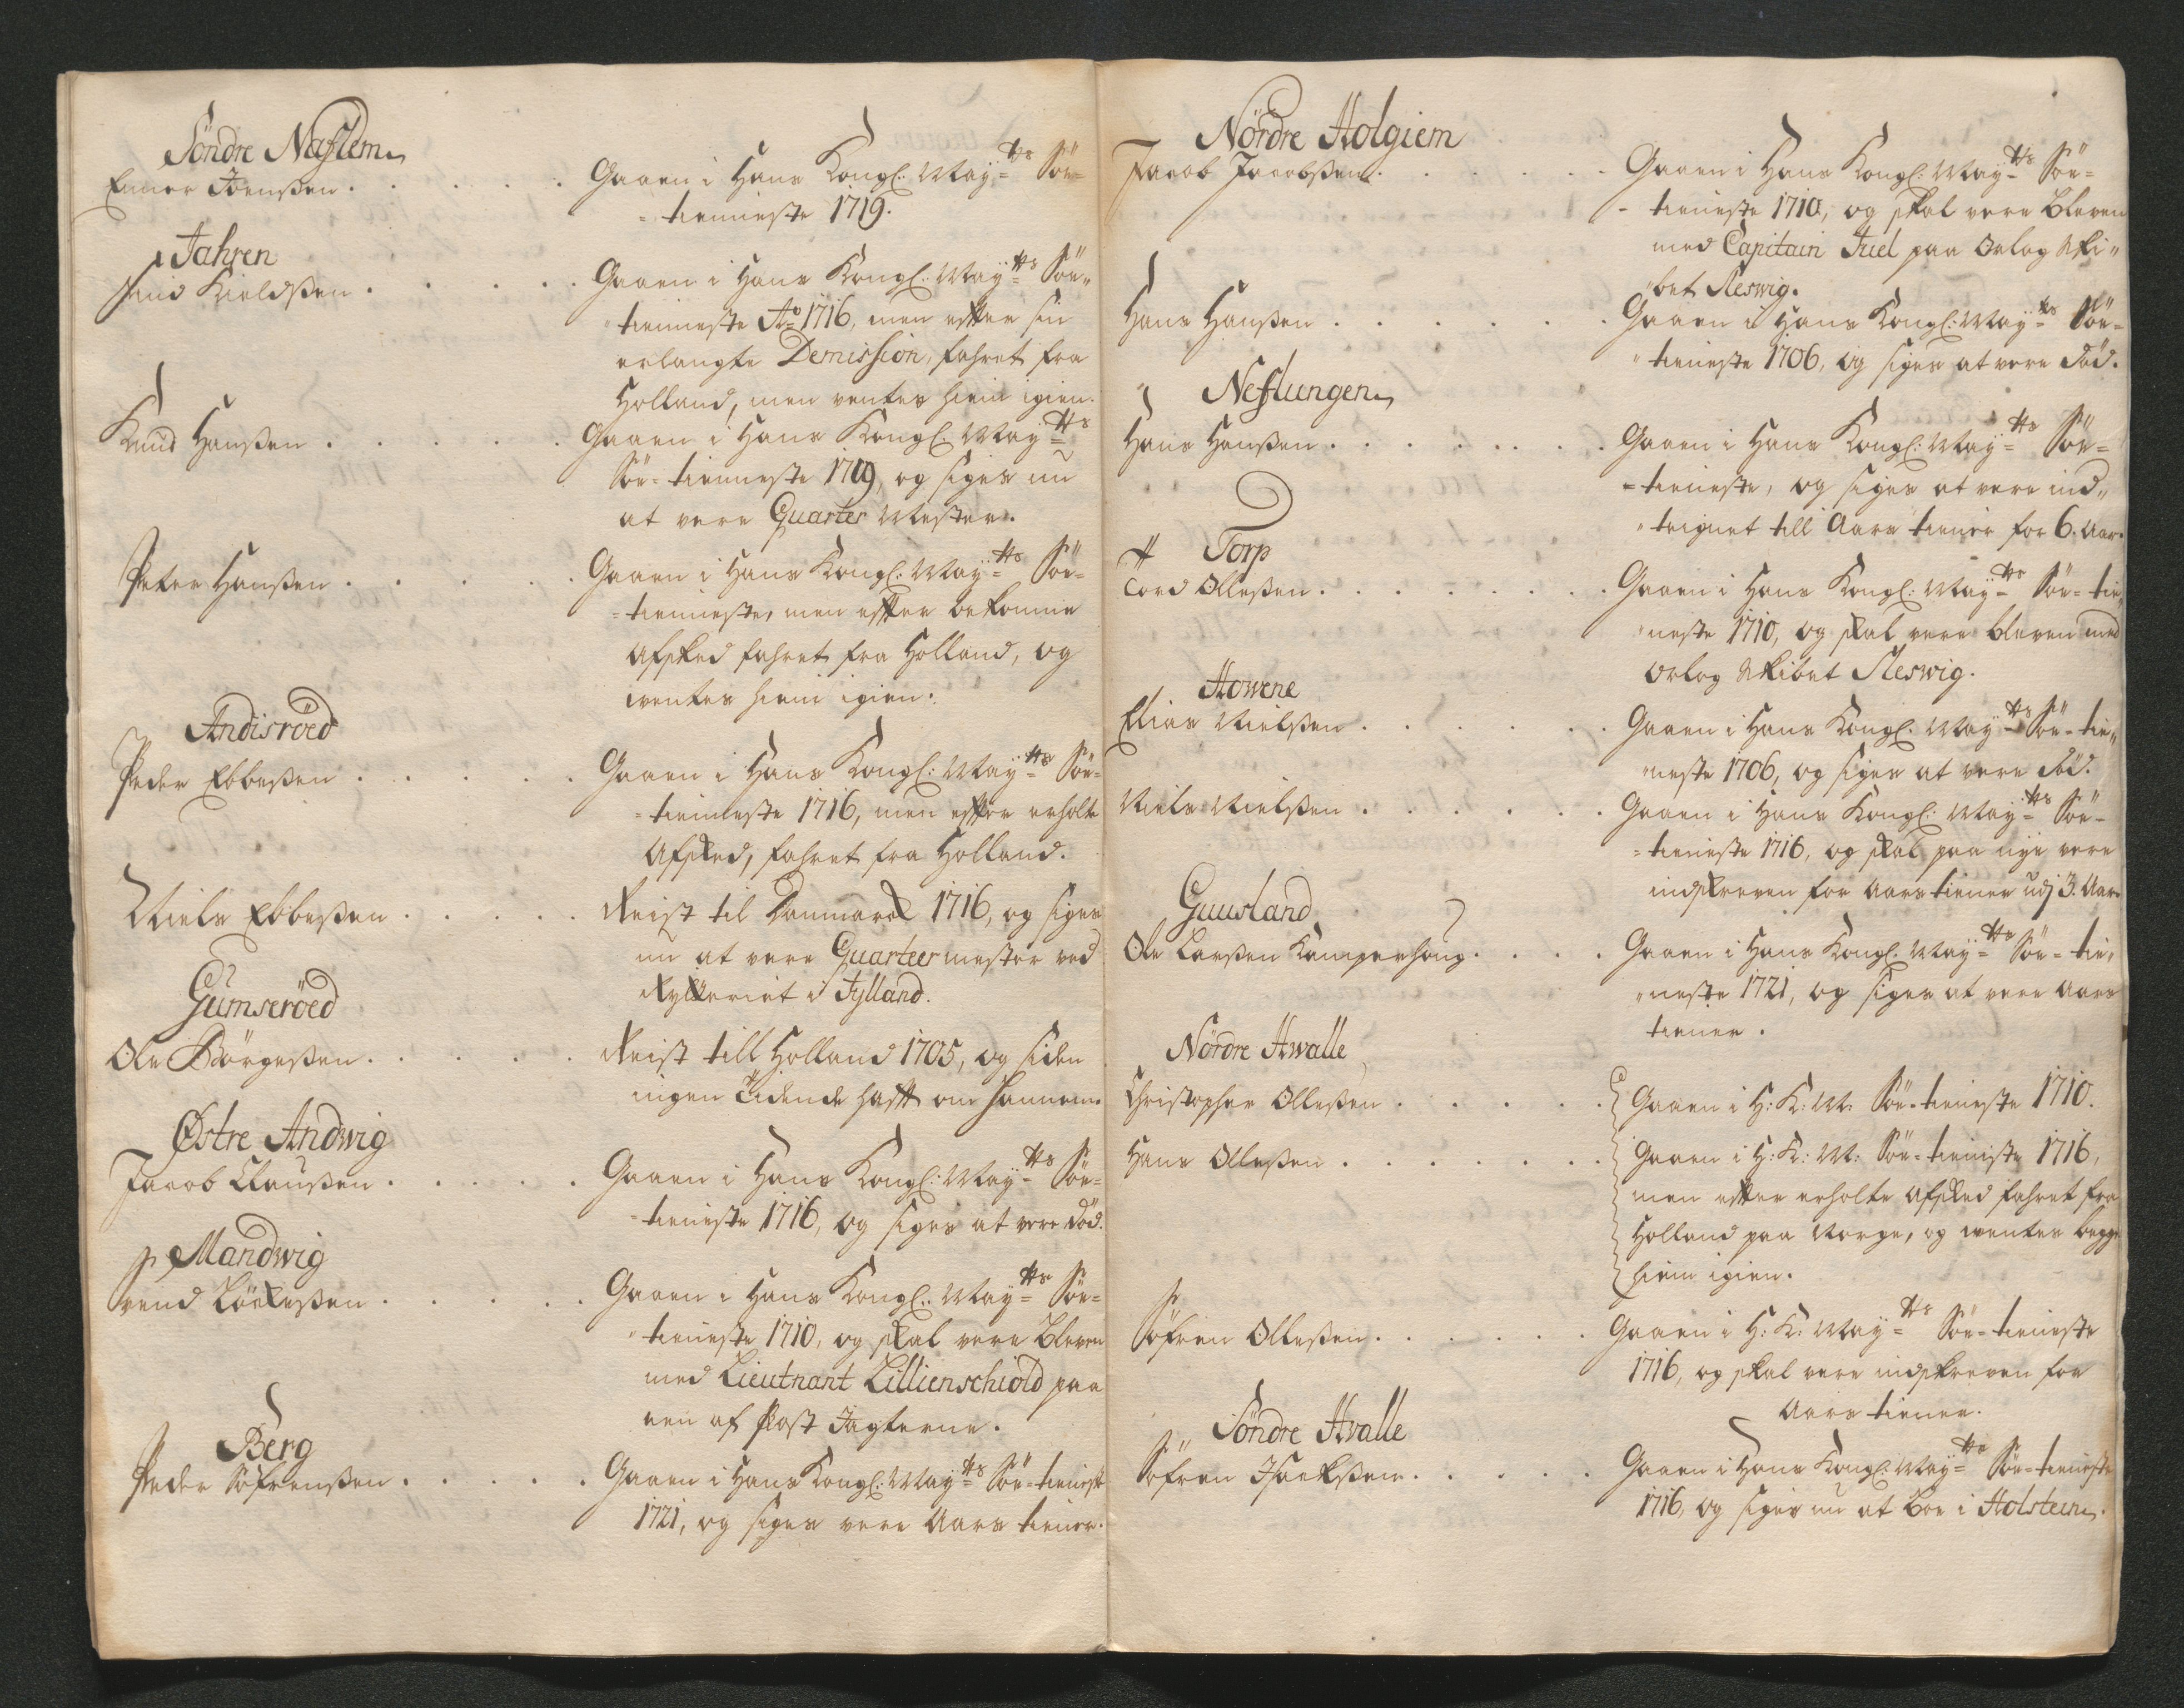 Söndre Naslem
Enner Joensßen . . . . . . Gaaen i Hans Kongl: May=tts Söe=
=tienneste 1719.
Jahren
Knud Kieldsßen . . . . . Gaaen i Hans Kongl: May=tts Söe=
tienneste Ao 1716, men efter sin
erlangte Demission, fahret fra
Holland, men ventes hiem igien.
Knud Hansßen . . . . . Gaaen i Hans Kongl: May=tts
Söe=tienneste 1709, og siges nu
at vere Quarter Mester.
Peter Hansßen . . . . . Gaaen i Hans Kongl: May=tts Söe=
=tienneste, men efter bekomme
Afsked fahret fra Holland, og
ventes hiem igien.
Andisröed
Peder Ebbesßen . . . . . Gaaen i Hans Kongl: May=tts Söe=
=tienneste 1716, men efter erholte
Afsked, fahret fra Holland.
Niels Ebbesßen . . . . . Reist til Danmarck 1716, og siges
nu at vere Quarteermester ved
Rytteriet i Jylland.
Gumseröed
Ole Börgesßen . . . . . Reist till Holland 1705, og siden
ingen Tidende hafft om hannem.
Østre Andwig
Jacob Clausßen . . . . . Gaaen i Hans Kongl: May=tts Söe=
=tieneste 1716, og siges at vere död.
Mandwig
Svend Löckesßen . . . . . Gaaen i Hans Kongl: May=tts Söe=
tieneste 1710, og skal vere bleven
med Lieutnant Lillienschiold paa
een af Post Jagterne.
Berg
Peder Söfrensßen . . . . . Gaaen i Hans Kongl: May=tts Söe=tieneste
1721, og siges vere Aars tiener.
Nördre Holgiem
Jacob Jacobsßen . . . . . . Gaaen i Hans Kongl: May=tts Söe=
=tieneste 1710, og skal vere bleven
med Capitain Juel paa Orlog Ski"
"bet Sleswig.
Hans Hansßen . . . . . . Gaaen i Hans Kongl: May=tts Söe=
"tieneste 1706, og siges at vere död.
Neslungen
Hans Hansßen . . . . . . . Gaaen i Hans Kongl: May=tts Söe=
=tieneste, og siges at vere ind"
"teignet till Aars tiener for 6. Aar.
Torp
Tord Ollesßen . . . . . . . Gaaen i Hans Kongl: May=tts Söe=tie"
"neste 1710, og skal vere bleven med
Orlog Skibet Sleswig.
Howene
Elias Nielsßen . . . . . . Gaaen i Hans Kongl: May=tts Söe=tie"
"neste 1706, og siges at vere död.
Niels Nielsßen . . . . . . Gaaen i Hans Kongl: May=tts Söe=
=tieneste 1716, og skal paa nye vere
indskreven for Aars tiener udj 3. Aar.
Guusland
Ole Larsßen Kamperhoug . . . . Gaaen i Hans Kongl: May=tts Söe=tie"
"neste 1721, og siges at vere Aars
tiener.
Nördre Hwalle
Christopher Ollesßen . . . . . Gaaen i H: K: M: Söe=tieneste 1710.
Hans Ollesßen . . . . . . . Gaaen i H: K: M: Söe=tieneste 1716,
men efter erholte Afsked fahret fra
Holland paa Norge, og ventes begge
hiem igien.
Söfren Ollesßen . . . . . . Gaaen i H: K: May=tts Söe=tieneste
1716, og skal vere indskreven for
Aars tiener.
Söndre Hvalle
Söfren Isachsßen . . . . . Gaaen i Hans Kongl: May=tts Söe=tieneste
1716, og siges nu at boe i Holsteen.